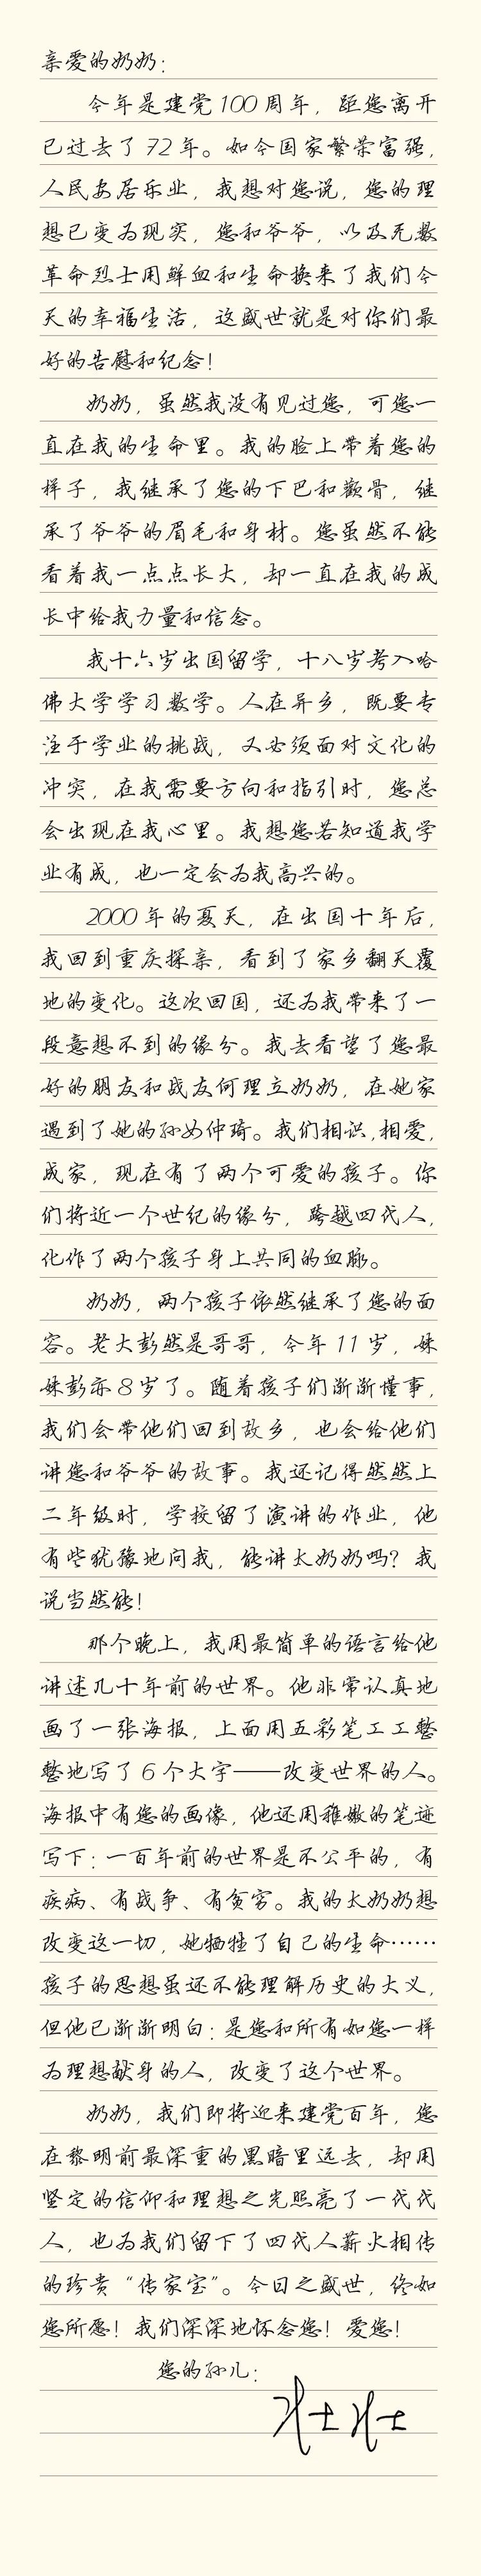 亲爱的奶奶：
今年是建党100周年，距您离开
已过去了72年。如今国家繁荣富强，
人民安居乐业，我想对您说，您的理
想已变为现实，您和爷爷，以及无数
革命烈士用鲜血和生命换来了我们今
天的幸福生活，这盛世就是对你们最
好的告慰和纪念！
奶奶，虽然我没有见过您，可您一
直在我的生命里。我的脸上带着您的
样子，我继承了您的下巴和颧骨，继
承了爷爷的眉毛和身材。您虽然不能
看着我一点点长大，却一直在我的成
长中给我力量和信念。
我十六岁出国留学，十八岁考入哈
佛大学学习数学。人在异乡，既要专
注于学业的挑战，又必须面对文化的
冲突，在我需要方向和指引时，您总
会出现在我心里。我想您若知道我学
业有成，也一定会为我高兴的。
2000年的夏天，在出国十年后，
我回到重庆探亲，看到了家乡翻天覆
地的变化。这次回国，还为我带来了一
段意想不到的缘分。我去看望了您最
好的朋友和战友何理立奶奶，在她家
遇到了她的孙女仲琦。我们相识,相爱，
成家，现在有了两个可爱的孩子。你
们将近一个世纪的缘分，跨越四代人，
化作了两个孩子身上共同的血脉。
奶奶，两个孩子依然继承了您的面
容。老大彭然是哥哥，今年11岁，妹
妹彭亦8岁了。随着孩子们渐渐懂事，
我们会带他们回到故乡，也会给他们
讲您和爷爷的故事。我还记得然然上
二年级时，学校留了演讲的作业，他
有些犹豫地问我，能讲太奶奶吗？我
说当然能！
那个晚上，我用最简单的语言给他
讲述几十年前的世界。他非常认真地
画了一张海报，上面用五彩笔工工整
整地写了6个大字——改变世界的人。
海报中有您的画像，他还用稚嫩的笔迹
写下：一百年前的世界是不公平的，有
疾病、有战争、有贫穷。我的太奶奶想
改变这一切，她牺牲了自己的生命……
孩子的思想虽还不能理解历史的大义，
但他已渐渐明白：是您和所有如您一样
为理想献身的人，改变了这个世界。
奶奶，我们即将迎来建党百年，您
在黎明前最深重的黑暗里远去，却用
坚定的信仰和理想之光照亮了一代代
人，也为我们留下了四代人薪火相传
的珍贵“传家宝”。今日之盛世，终如
您所愿！我们深深地怀念您！爱您！
您的孙儿：
壮壮